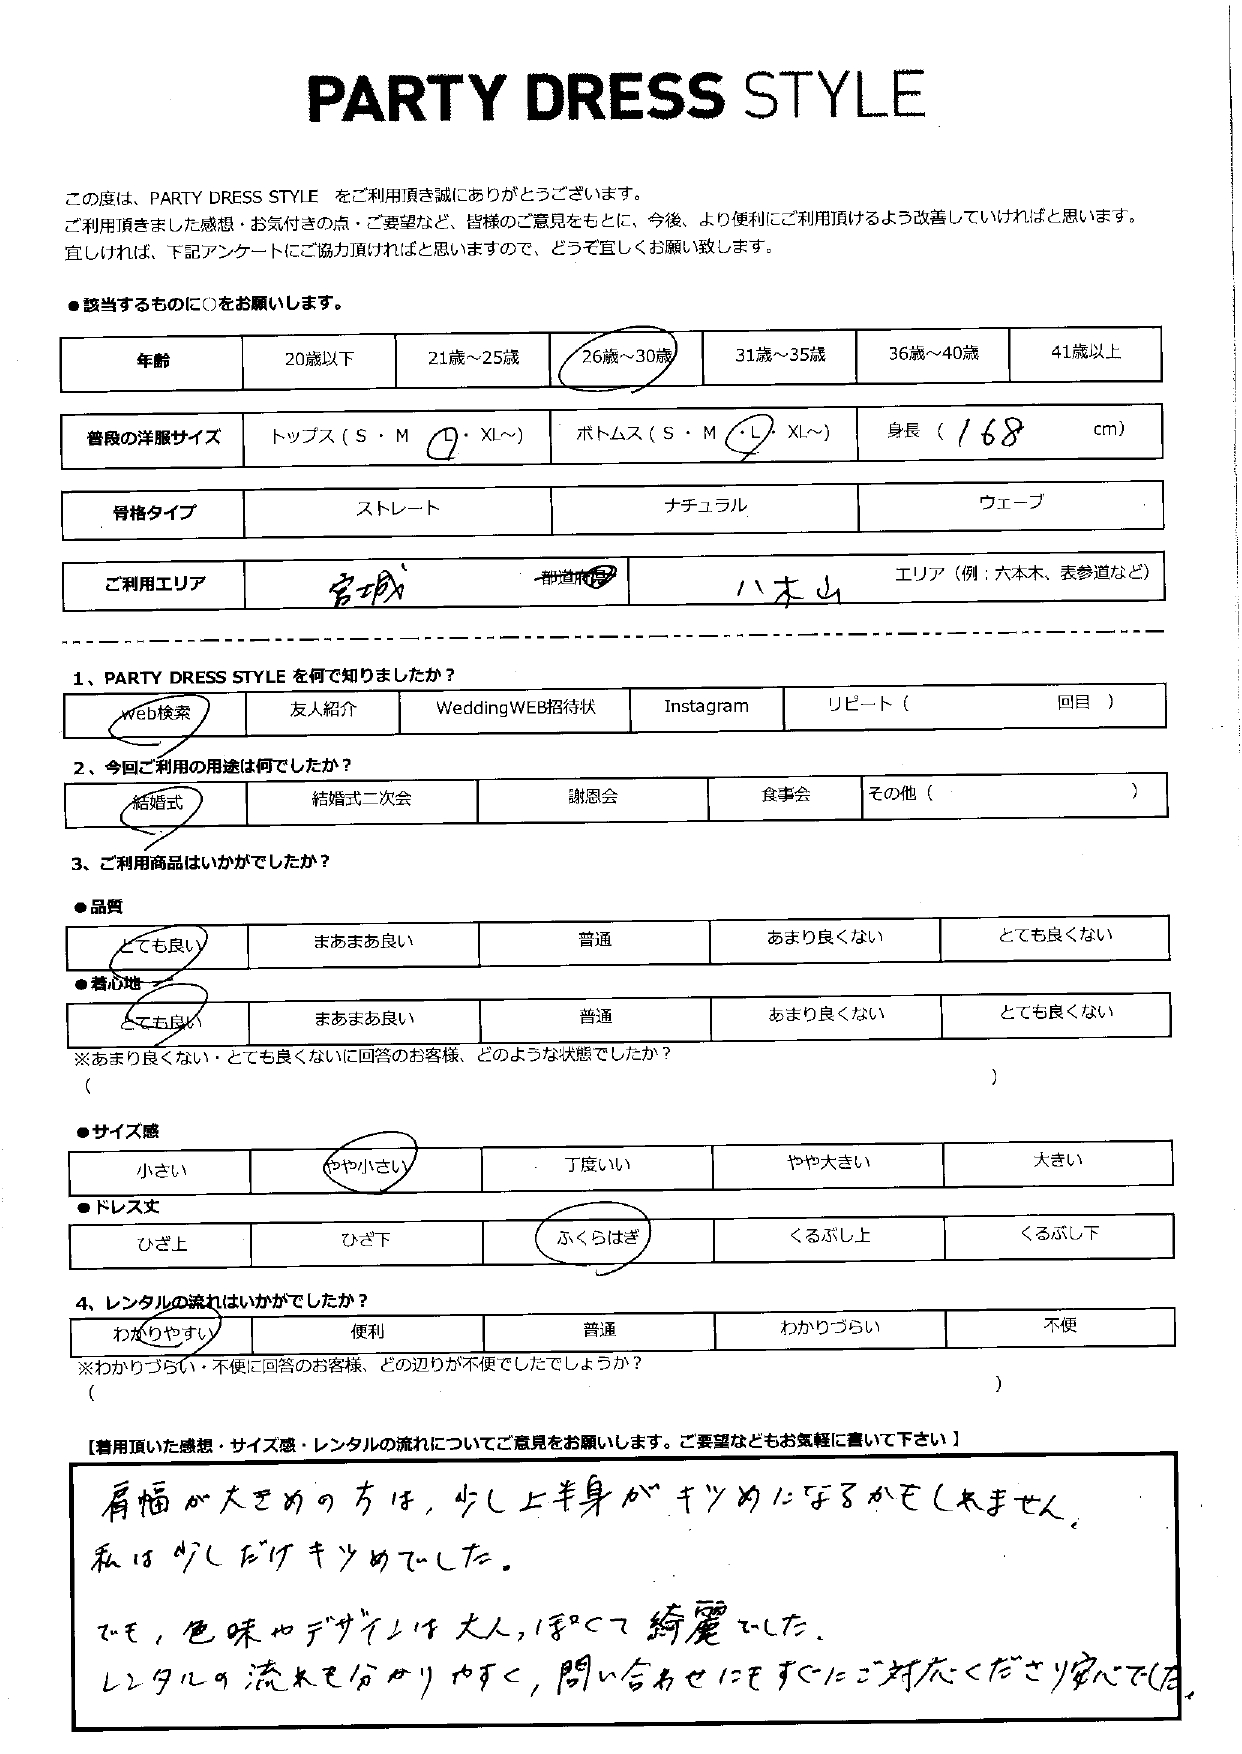 PARTY DRESS STYLE
この度は、PARTY DRESS STYLE をご利用頂き誠にありがとうございます。
ご利用頂きました感想・お気付きの点・ご要望など、皆様のご意見をもとに、今後、より便利にご利用頂けるよう改善していければと思います。
宜しければ、下記アンケートにご協力頂ければと思いますので、どうぞ宜しくお願い致します。
●該当するものに○をお願いします。
年齢 20歳以下 21歳～25歳 26歳～30歳 31歳～35歳 36歳～40歳 41歳以上
普段の洋服サイズ トップス ( S ・ M ・ L ・ XL～) ボトムス ( S ・ M ・ L ・ XL～) 身長 ( 168 cm)
骨格タイプ ストレート ナチュラル ウェーブ
ご利用エリア 宮城 都道府県 八木山 エリア（例：六本木、表参道など）
1、PARTY DRESS STYLE を何で知りましたか？
web検索 友人紹介 WeddingWEB招待状 Instagram リピート（ 回目 ）
2、今回ご利用の用途は何でしたか？
結婚式 結婚式二次会 謝恩会 食事会 その他（ ）
3、ご利用商品はいかがでしたか？
●品質
とても良い まあまあ良い 普通 あまり良くない とても良くない
●着心地
とても良い まあまあ良い 普通 あまり良くない とても良くない
※あまり良くない・とても良くないに回答のお客様、どのような状態でしたか？
（ ）
●サイズ感
小さい やや小さい 丁度いい やや大きい 大きい
●ドレス丈
ひざ上 ひざ下 ふくらはぎ くるぶし上 くるぶし下
4、レンタルの流れはいかがでしたか？
わかりやすい 便利 普通 わかりづらい 不便
※わかりづらい・不便に回答のお客様、どの辺りが不便でしたでしょうか？
（ ）
【着用頂いた感想・サイズ感・レンタルの流れについてご意見をお願いします。ご要望などもお気軽に書いて下さい】
肩幅が大きめの方は、少し上半身がキツめになるかもしれません。
私は少しだけキツめでした。
でも、色味やデザインは大人っぽくて綺麗でした。
レンタルの流れも分かりやすく、問い合わせにもすぐにご対応くださり安心でした。